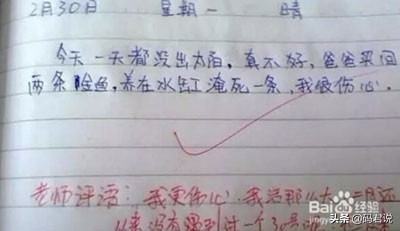 2月30日 星期一 晴
今天一天都没出太阳,真不好,爸爸买回
两条金鱼,养在水缸淹死一条,我很伤心。
老师评语:我更伤心 我活那么大二月还
从来没有遇到过一个30号
Bai 百科 经验
头条 @码君说